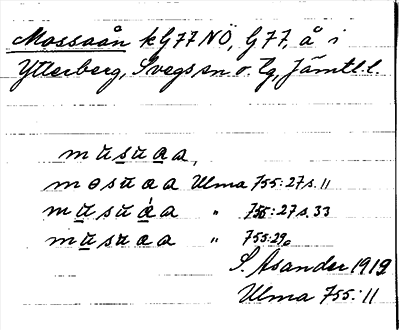 Mossaån k G77 NÖ, G77, å i
Ytterberg, Svegs sn o. tg, Jämtl. l.
mŭsŭaa,
mɵsŭaa Ulma 755:27 s. 11
mŭsŭáa " 755:27 s. 33
mŭsŭaa " 755:29
S. Asander 1919
Ulma 755:11